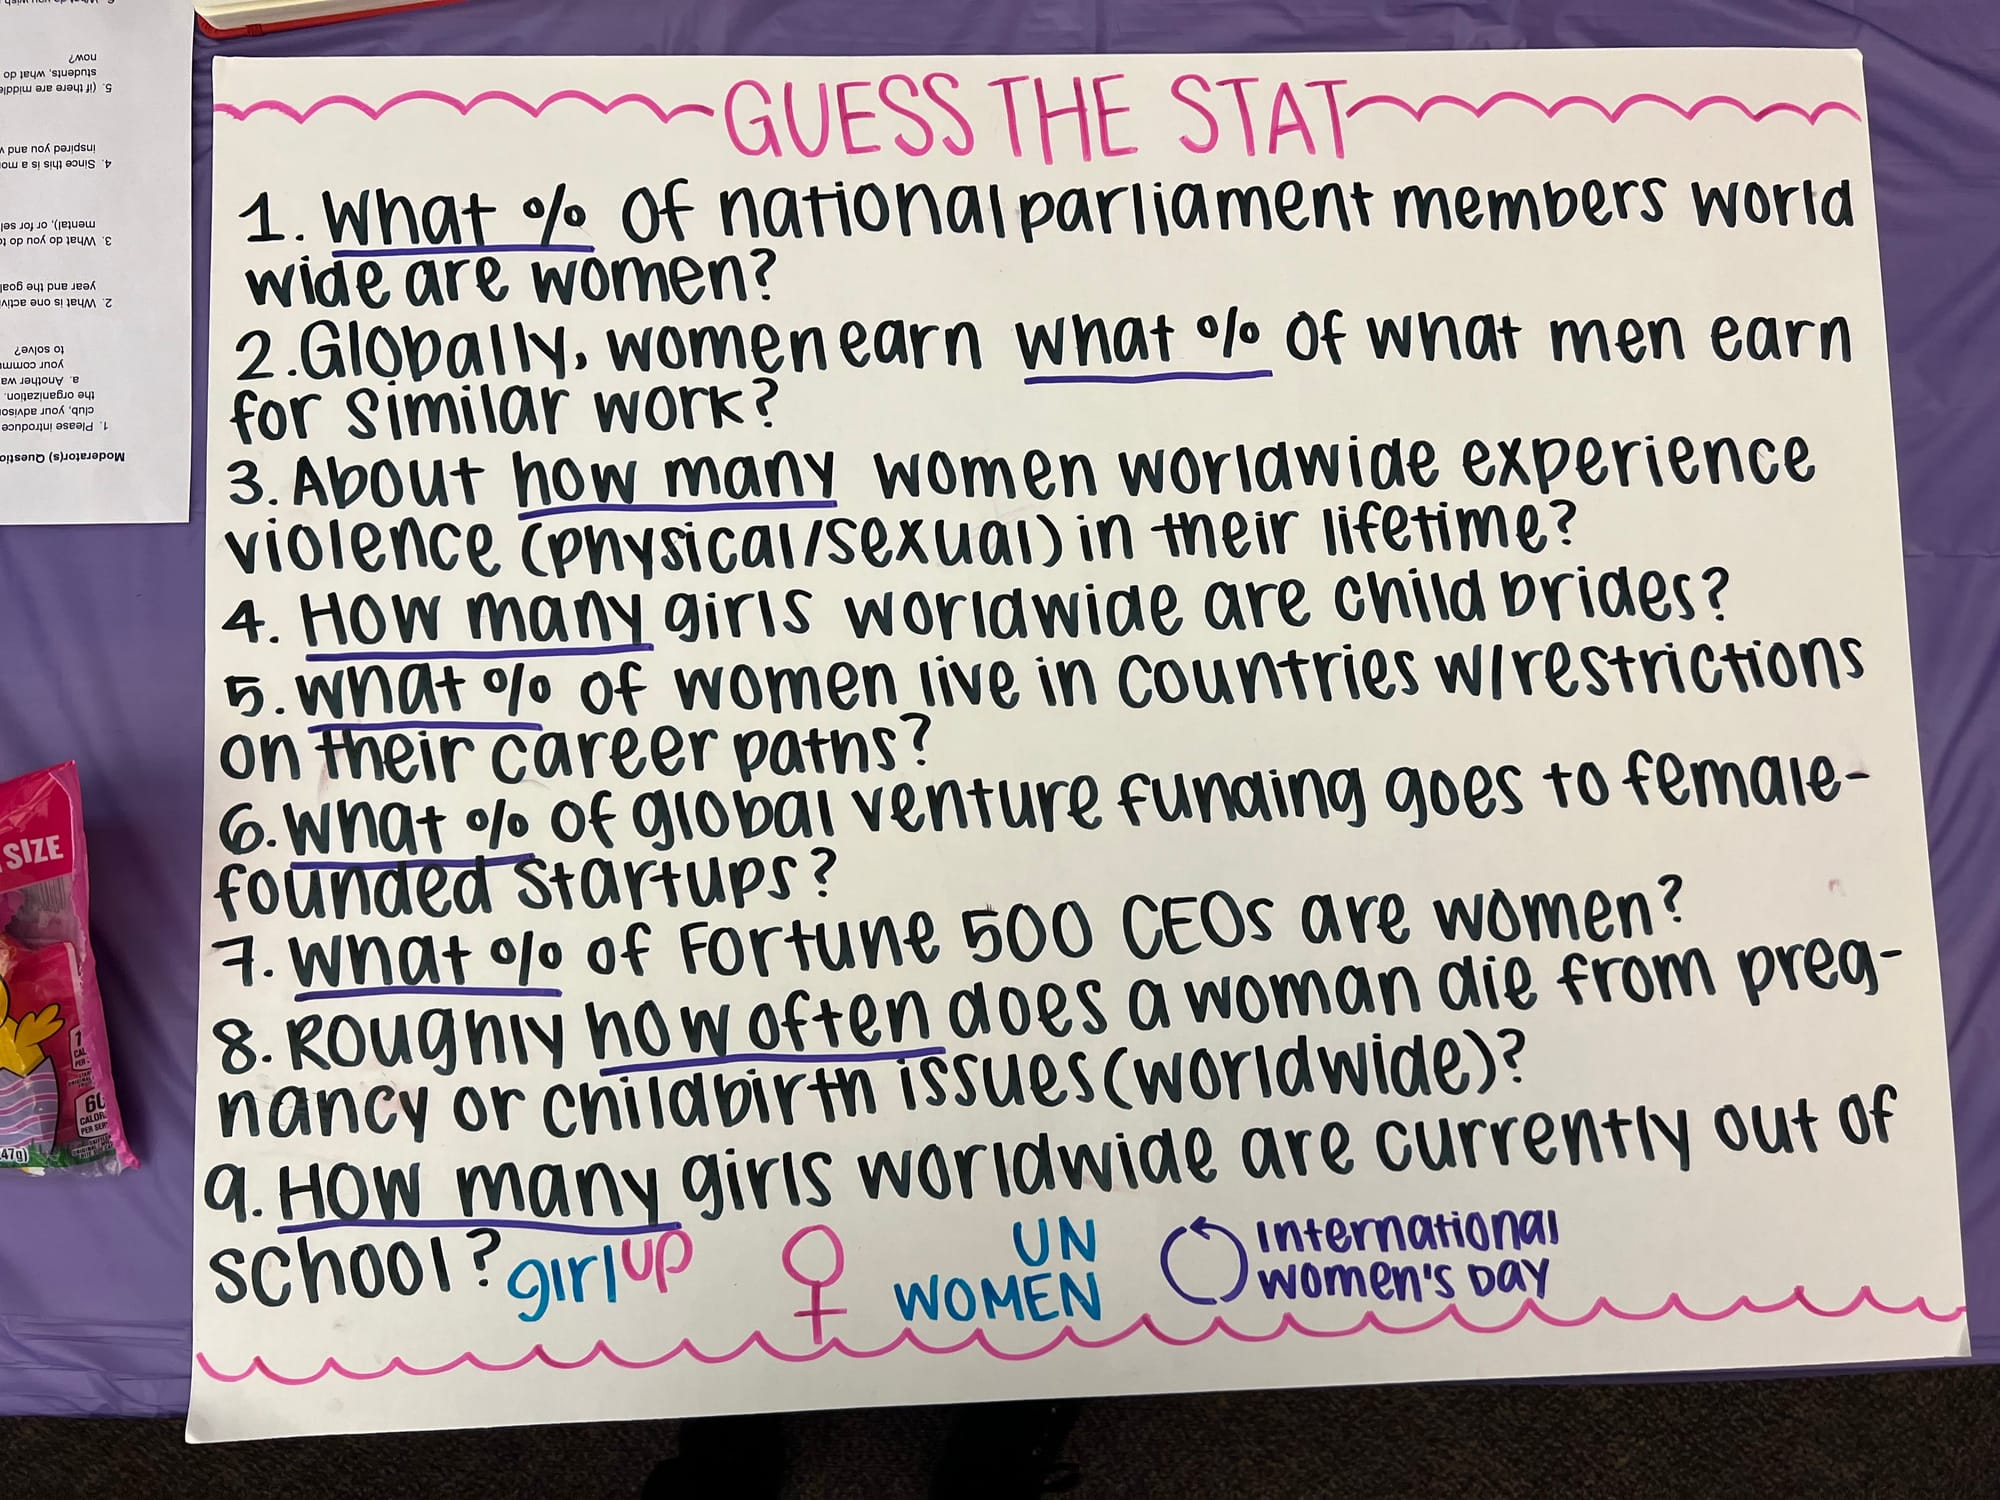 GUESS THE STAT
1. What % of national parliament members world
wide are women?
2. Globally, women earn what % of what men earn
for similar work?
3. About how many women worldwide experience
violence (physical/sexual) in their lifetime?
4. How many girls worldwide are child brides?
5. What % of women live in countries w/restrictions
on their career paths?
6. What % of global venture funding goes to female-
founded startups?
7. What % of Fortune 500 CEOs are women?
8. Roughly how often does a woman die from preg-
nancy or childbirth issues (worldwide)?
9. How many girls worldwide are currently out of
school?
girl up
UN
WOMEN
International
Women's Day
Moderator(s) Questio
1. Please introduce
club, your advisor
the organization.
a. Another wa
your comm
to solve?
2. What is one activi
year and the goal
3. What do you do to
mental), or for sel
4. Since this is a mo
inspired you and
5. (if there are middle
students, what do
now?
SIZE
CAL
CALOR
PER SER
47g)